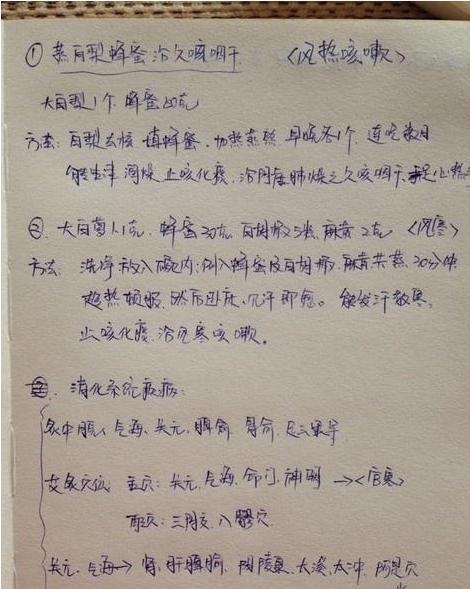 ① 蒸白梨蜂蜜治久咳咽干 〈风热咳嗽〉
大白梨1个 蜂蜜50克
方法: 白梨去核 填蜂蜜, 加热蒸熟 早晚各1个, 连吃数日
能生津润燥 止咳化痰, 治阴虚肺燥之久咳咽干, 手足心热
②. 大白萝卜1个, 蜂蜜30克 白胡椒5粒 麻黄2克 〈风寒〉
方法: 洗净 放入碗内; 倒入蜂蜜及白胡椒, 麻黄共蒸 30分钟
趁热顿服, 然后卧床, 见汗即愈。 能发汗散寒,
止咳化痰, 治风寒咳嗽。
消化系统疾病:
灸中脘, 气海, 关元, 脾俞 胃俞 足三里等
艾灸穴位 主穴: 关元, 气海, 命门, 神阙 → 〈宫寒〉
配穴: 三阴交, 八髎穴
关元, 气海 → 肾, 肝脾俞, 阴陵泉, 太溪, 太冲, 阿是穴